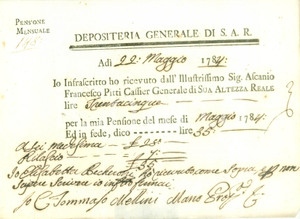 PENSIONE
MENSUALE
DEPOSITERIA GENERALE DI S. A. R.
Adì 22 Maggio 1784:
Io Infrascritto ho ricevuto dall' Illustrissimo Sig. Ascanio
Francesco Pitti Cassier Generale di SUA ALTEZZA REALE
lire Trentacinque
per la mia Pensione del mese di Maggio 1784:
Ed in fede, dico lire 35.
£ 35.
Io Elisabetta ho ricevuto come Sopra, e p. non
Sapere Scrivere
Io C. Tommaso Mellini Mano Prop.